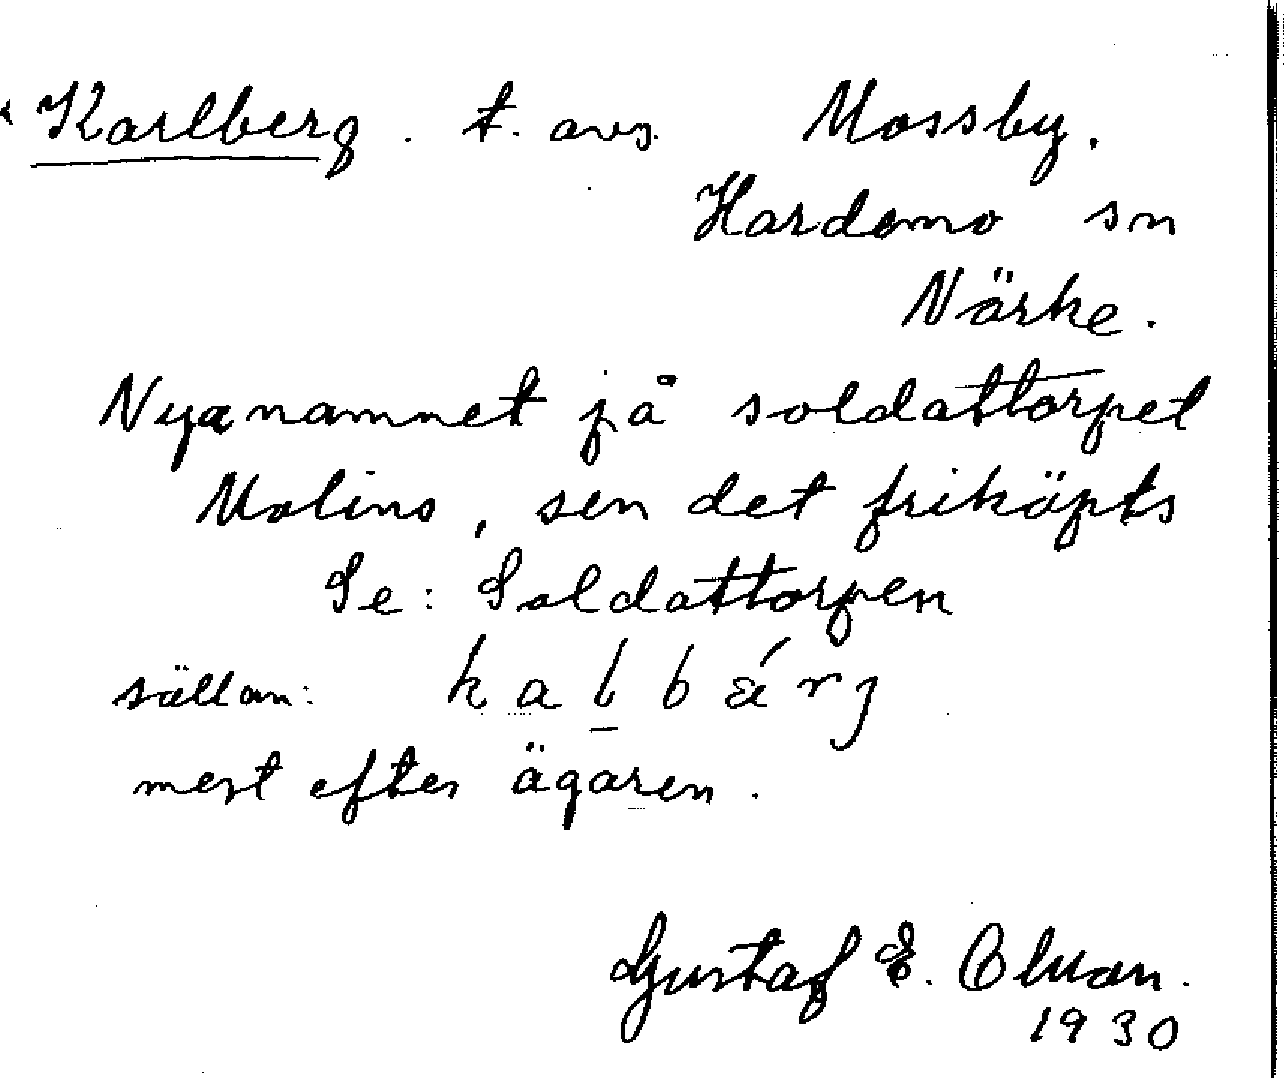 Karlberg. t. avs. Mossby.
Hardemo sn
Närke.
Nyanamnet på soldattorpet
Molins, sen det friköpts
Se: Soldattorpen
sällan: kalbärj
mest efter ägaren.
Gustaf E.
1930